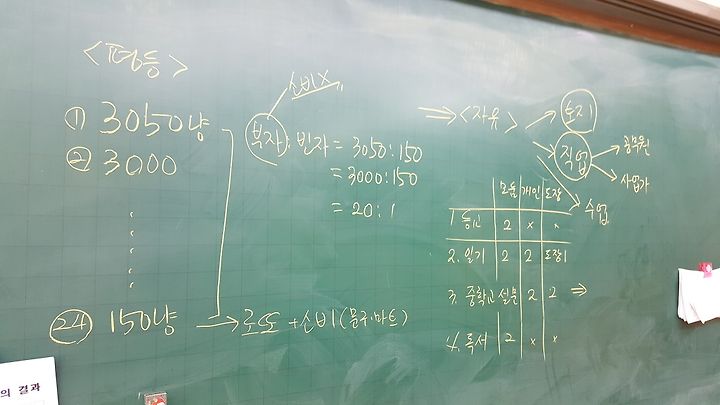 <평등>
① 3050냥
② 3000
㉔ 150냥 → 로또 +소비(문구·마트)
소비X
부자 : 빈자 = 3050:150
= 3000:150
= 20:1
⇒ <자유>
토지
직업
공무원
사업가
수업
모둠 개인 도장
1. 등교 2 x x
2. 일기 2 2 도장1
3. 중학교 설문 2 2 ⇒
4. 독서 2 x x
의 결과